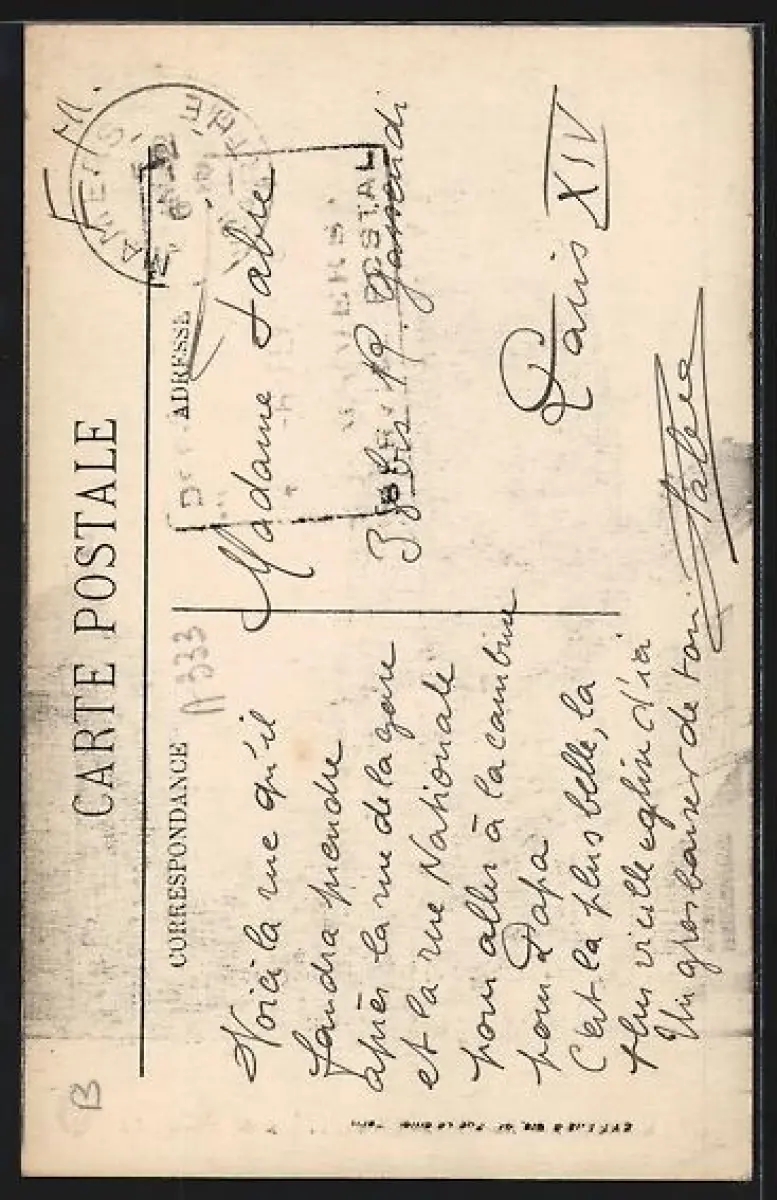 CARTE POSTALE
CORRESPONDANCE
ADRESSE
F. M.
MAMERS
SARTHE
A 333
B
Voici la rue qu'il
faudra prendre
après la rue de la gare
et la rue Nationale
pour aller à la cambuse
pour Papa
C'est la plus belle, la
plus vieille eglise d'ici
Un gros baiser de ton
Madame Fabre
3 bis 19. Gassendi
Paris XIV
POSTAL